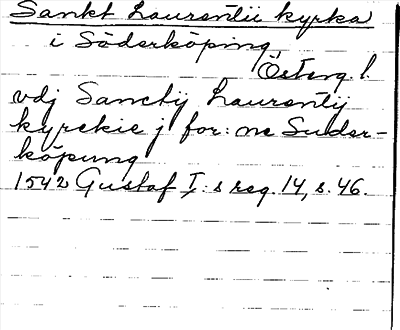 Sankt Laurentii kyrka
i Söderköping,
Österg. l.
vdj Sanctij Laurentij
kyrckie j for: ne Suder-
köpung
1542 Gustaf I: s reg. 14, s. 46.